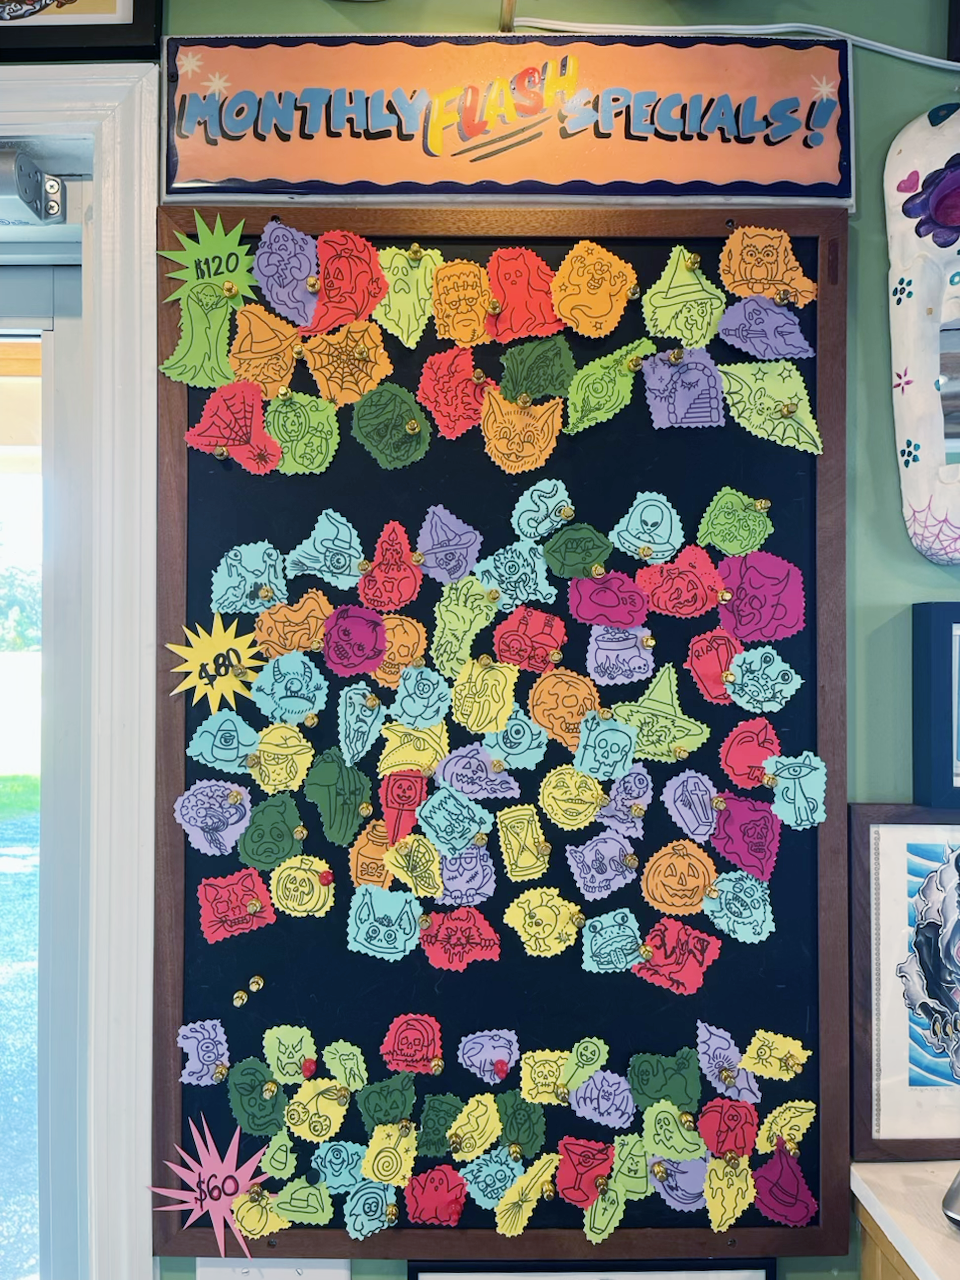 MONTHLY FLASH SPECIALS!
$120
$80
RIP
$60